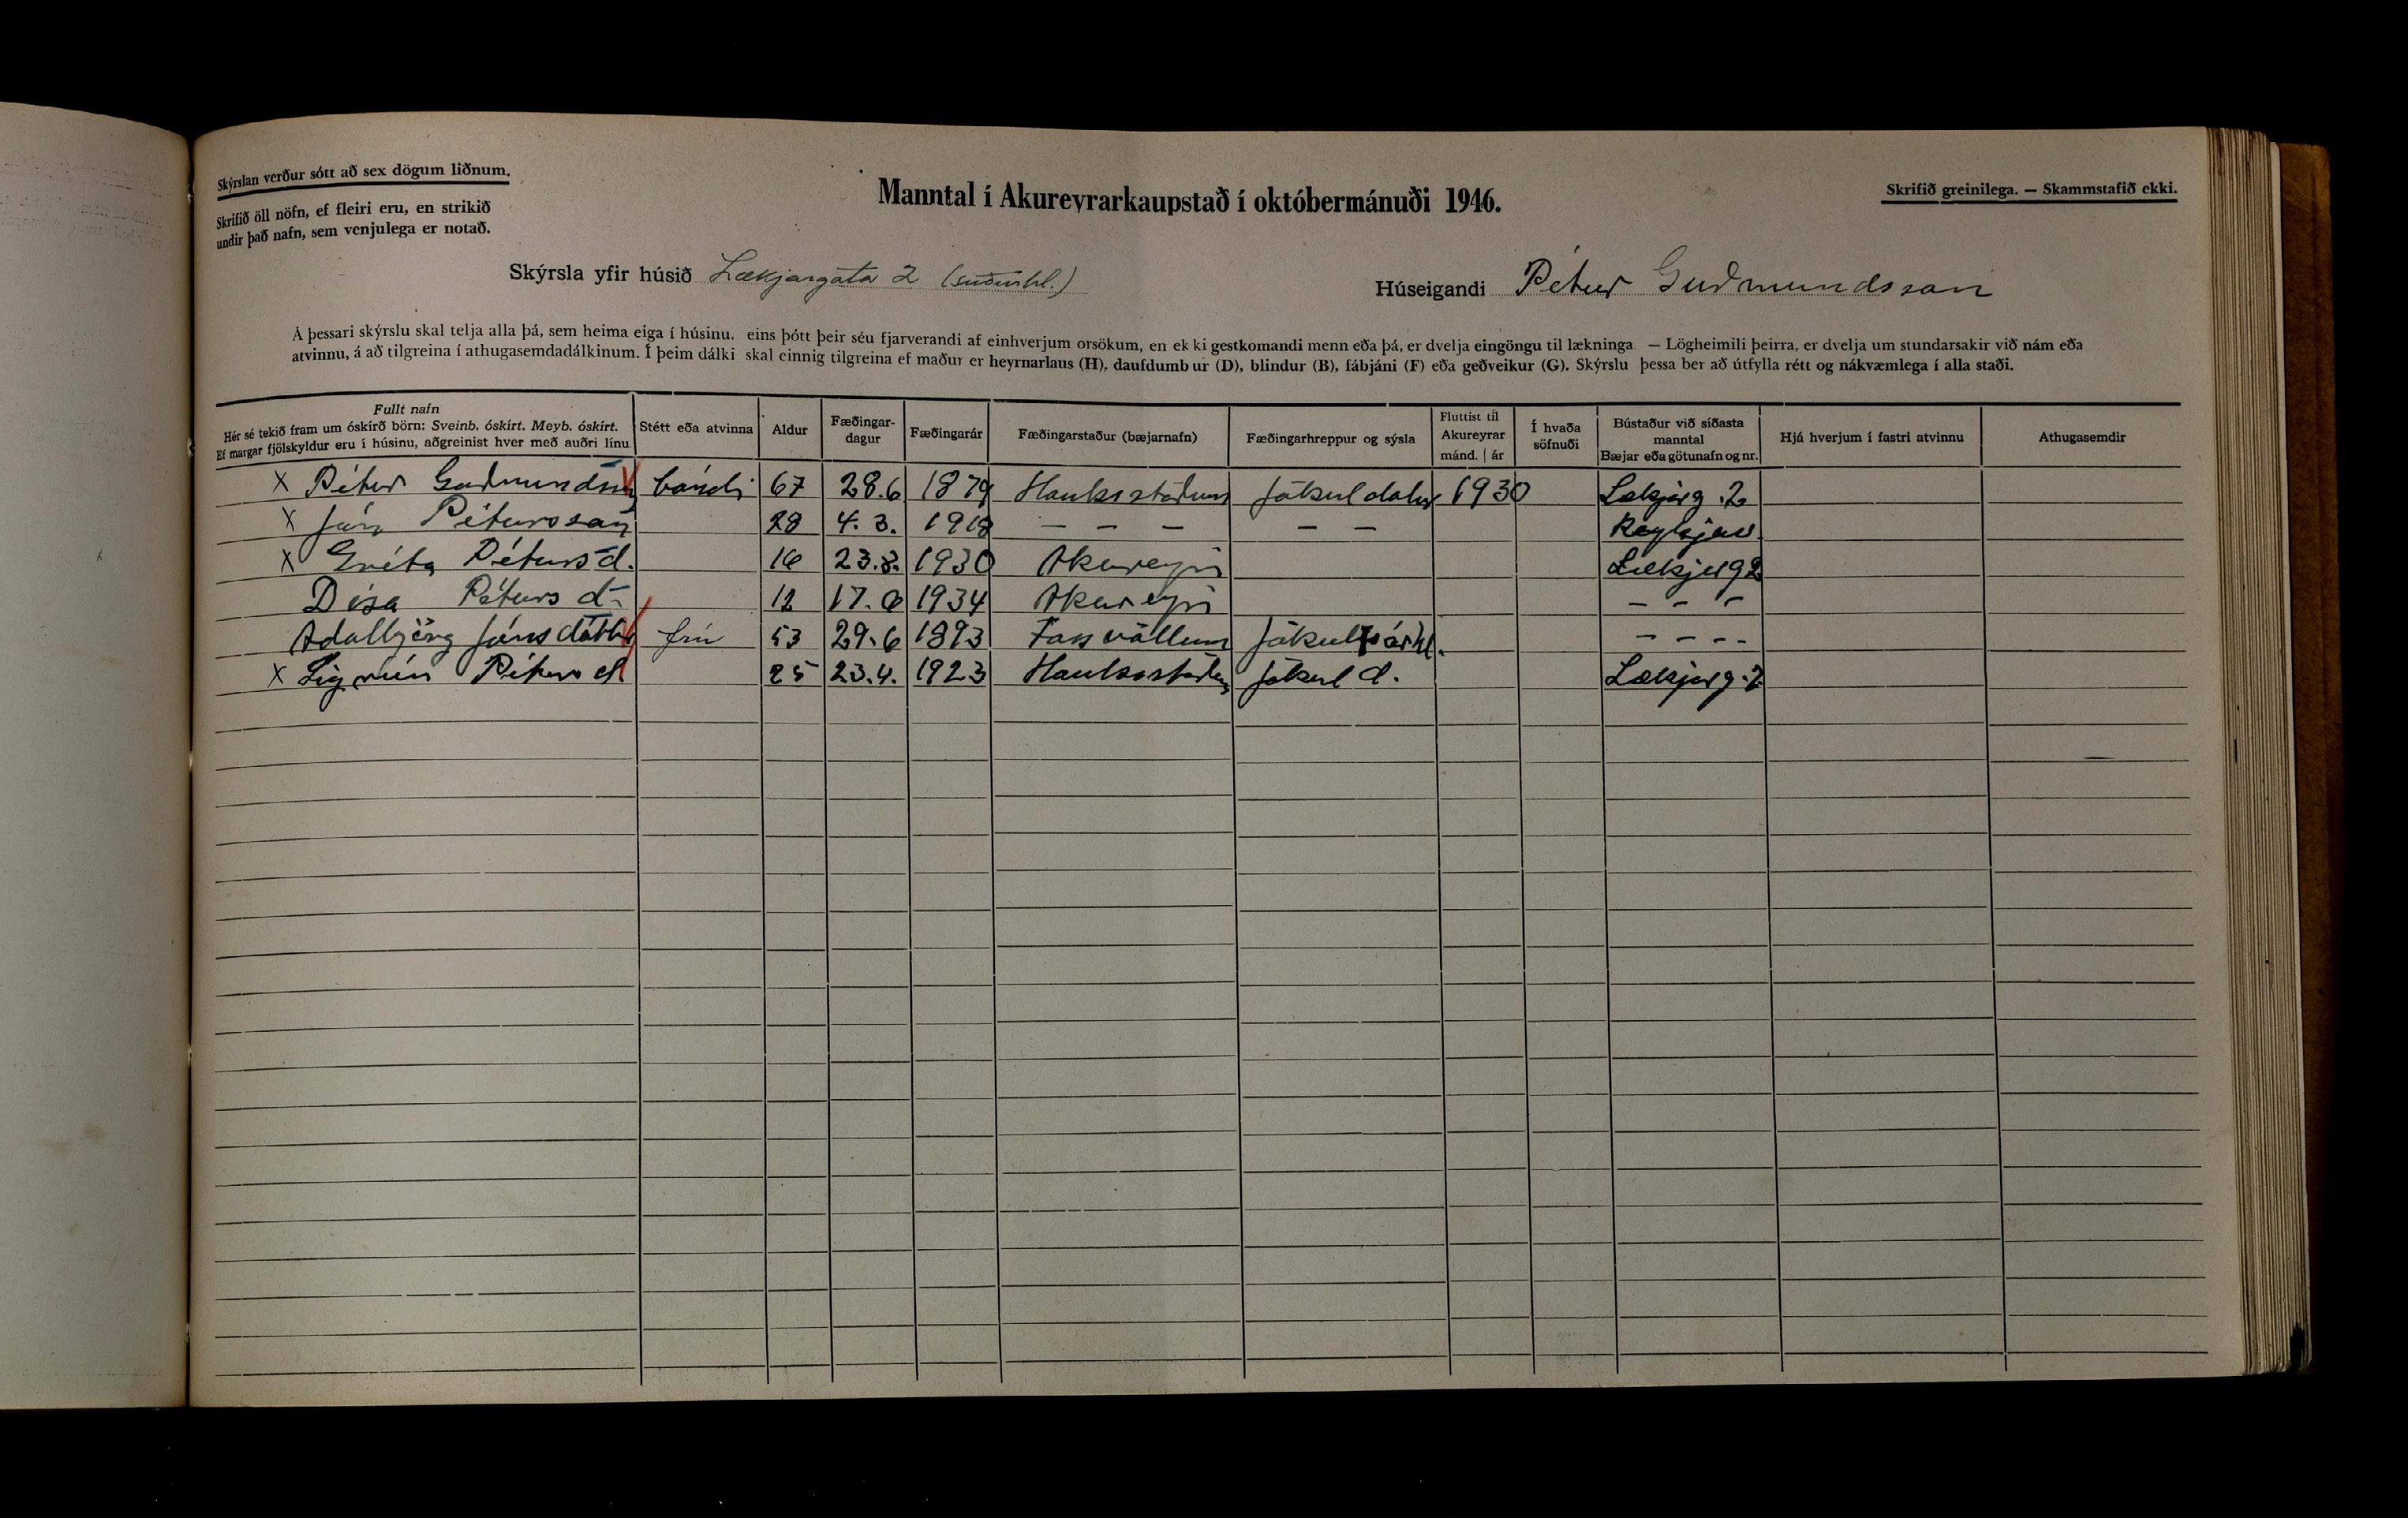 Skýrslan verður sótt að sex dögum liðnum.
Skrifið öll nöfn, ef fleiri eru, en strikið
undir það nafn, sem venjulega er notað.
Manntal í Akureyrarkaupstað í októbermánuði 1946.
Skrifið greinilega. — Skammstafið ekki.
Skýrsla yfir húsið Lækjargata 2 (suðurhl.)
Húseigandi Pétur Guðmundsson
Á þessari skýrslu skal telja alla þá, sem heima eiga í húsinu, eins þótt þeir séu fjarverandi af einhverjum orsökum, en ekki gestkomandi menn eða þá, er dvelja eingöngu til lækninga. — Lögheimili þeirra, er dvelja um stundarsakir við nám eða
atvinnu, á að tilgreina í athugasemdadálkinum. Í þeim dálki skal einnig tilgreina ef maður er heyrnarlaus (H), daufdumbur (D), blindur (B), fábjáni (F) eða geðveikur (G). Skýrslu þessa ber að útfylla rétt og nákvæmlega í alla staði.
Fullt nafn
Hér sé tekið fram um óskírð börn: Sveinb. óskírt. Meyb. óskírt.
Ef margar fjölskyldur eru í húsinu, aðgreinist hver með auðri línu.
Stétt eða atvinna
Aldur
Fæðingar-
dagur
Fæðingarár
Fæðingarstaður (bæjarnafn)
Fæðingarhreppur og sýsla
Fluttist til
Akureyrar
mánd. | ár
Í hvaða
söfnuði
Bústaður við síðasta
manntal
Bæjar eða götunafn og nr.
Hjá hverjum í fastri atvinnu
Athugasemdir
x Pétur Guðmundsson bóndi 67 28.6 1879 Hauksstöðum Jökuldalur 1930 Lækjarg. 2
x Jón Pétursson 28 4.3. 1918 – – – – – Reykjav.
x Gréta Péturs d. 16 23.8. 1930 Akureyri Lækjarg 2
Dísa Péturs d. 12 1934 Akureyri – – –
Aðalbjörg Jónsdóttir frú 53 29.6 1893 Fossvöllum – – – –
x Sigrún Péturs d 25 23.4. 1923 Hauksstöðum Jökul d. Lækjarg. 2